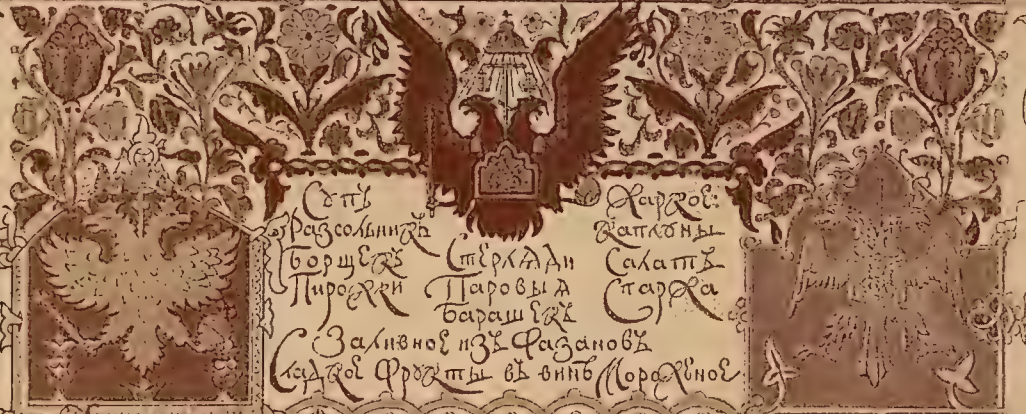 Супъ
Разсольникъ
Борщекъ
Пирожки
Стерлѧди
Паровыѧ
Барашекъ
Жаркое:
Каплуны
Салатъ
Спаржа
Заливное изъ Фазановъ
Сладкое Фрукты въ винѣ Мороженое